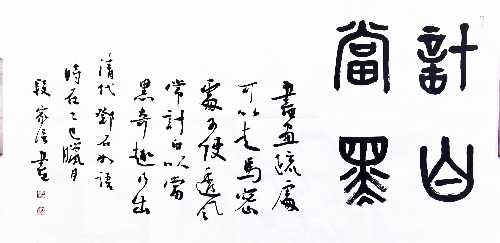 計白
當黑
書畫疏處
可以走馬密
處不使透风
常計白以當
黑奇趣乃出
清代鄧石如語
時在乙巳臘月
段家書